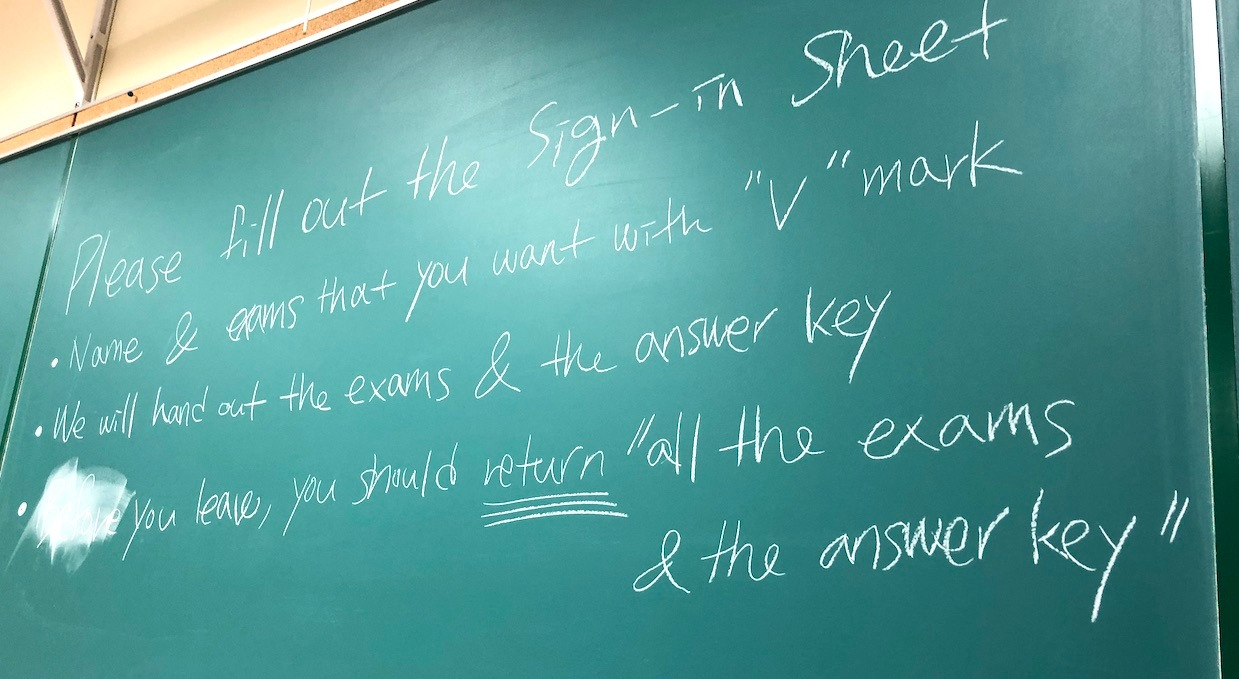 Please fill out the Sign-in Sheet
• Name & exams that you want with "V" mark
• We will hand out the exams & the answer key
• you leave, you should return "all the exams
& the answer key"